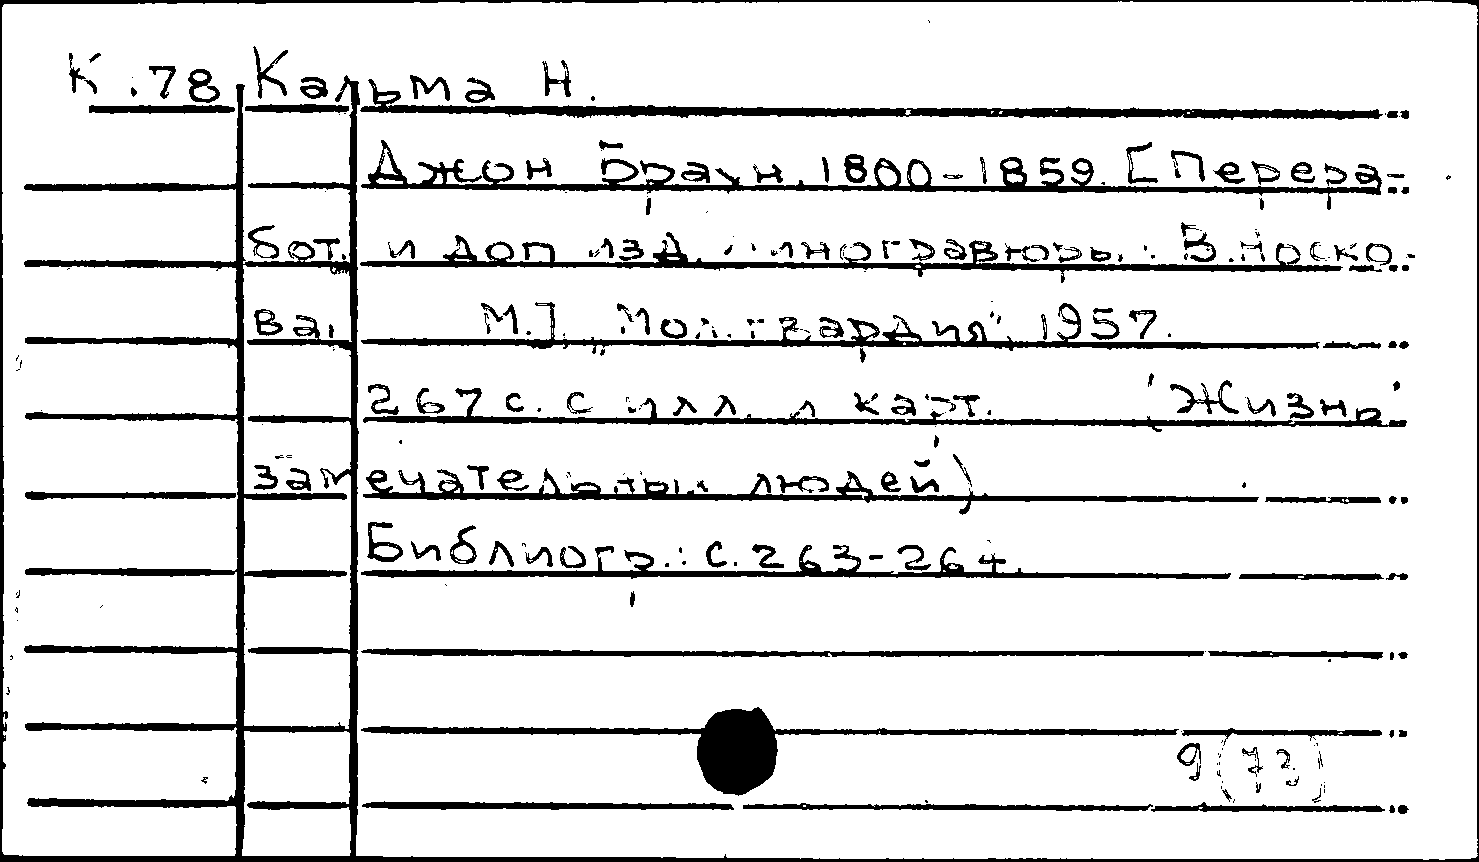 К.78 Кальма Н.
Джон Браун. 1800-1859. [Перера-
бот. и доп изд. Линогравюры: В. Носко-
ва. М.], „Мол. гвардия", 1957.
267 с. с илл. и карт. (Жизнь
замечательных людей)
Библиогр.: с. 263-264.
9(73)